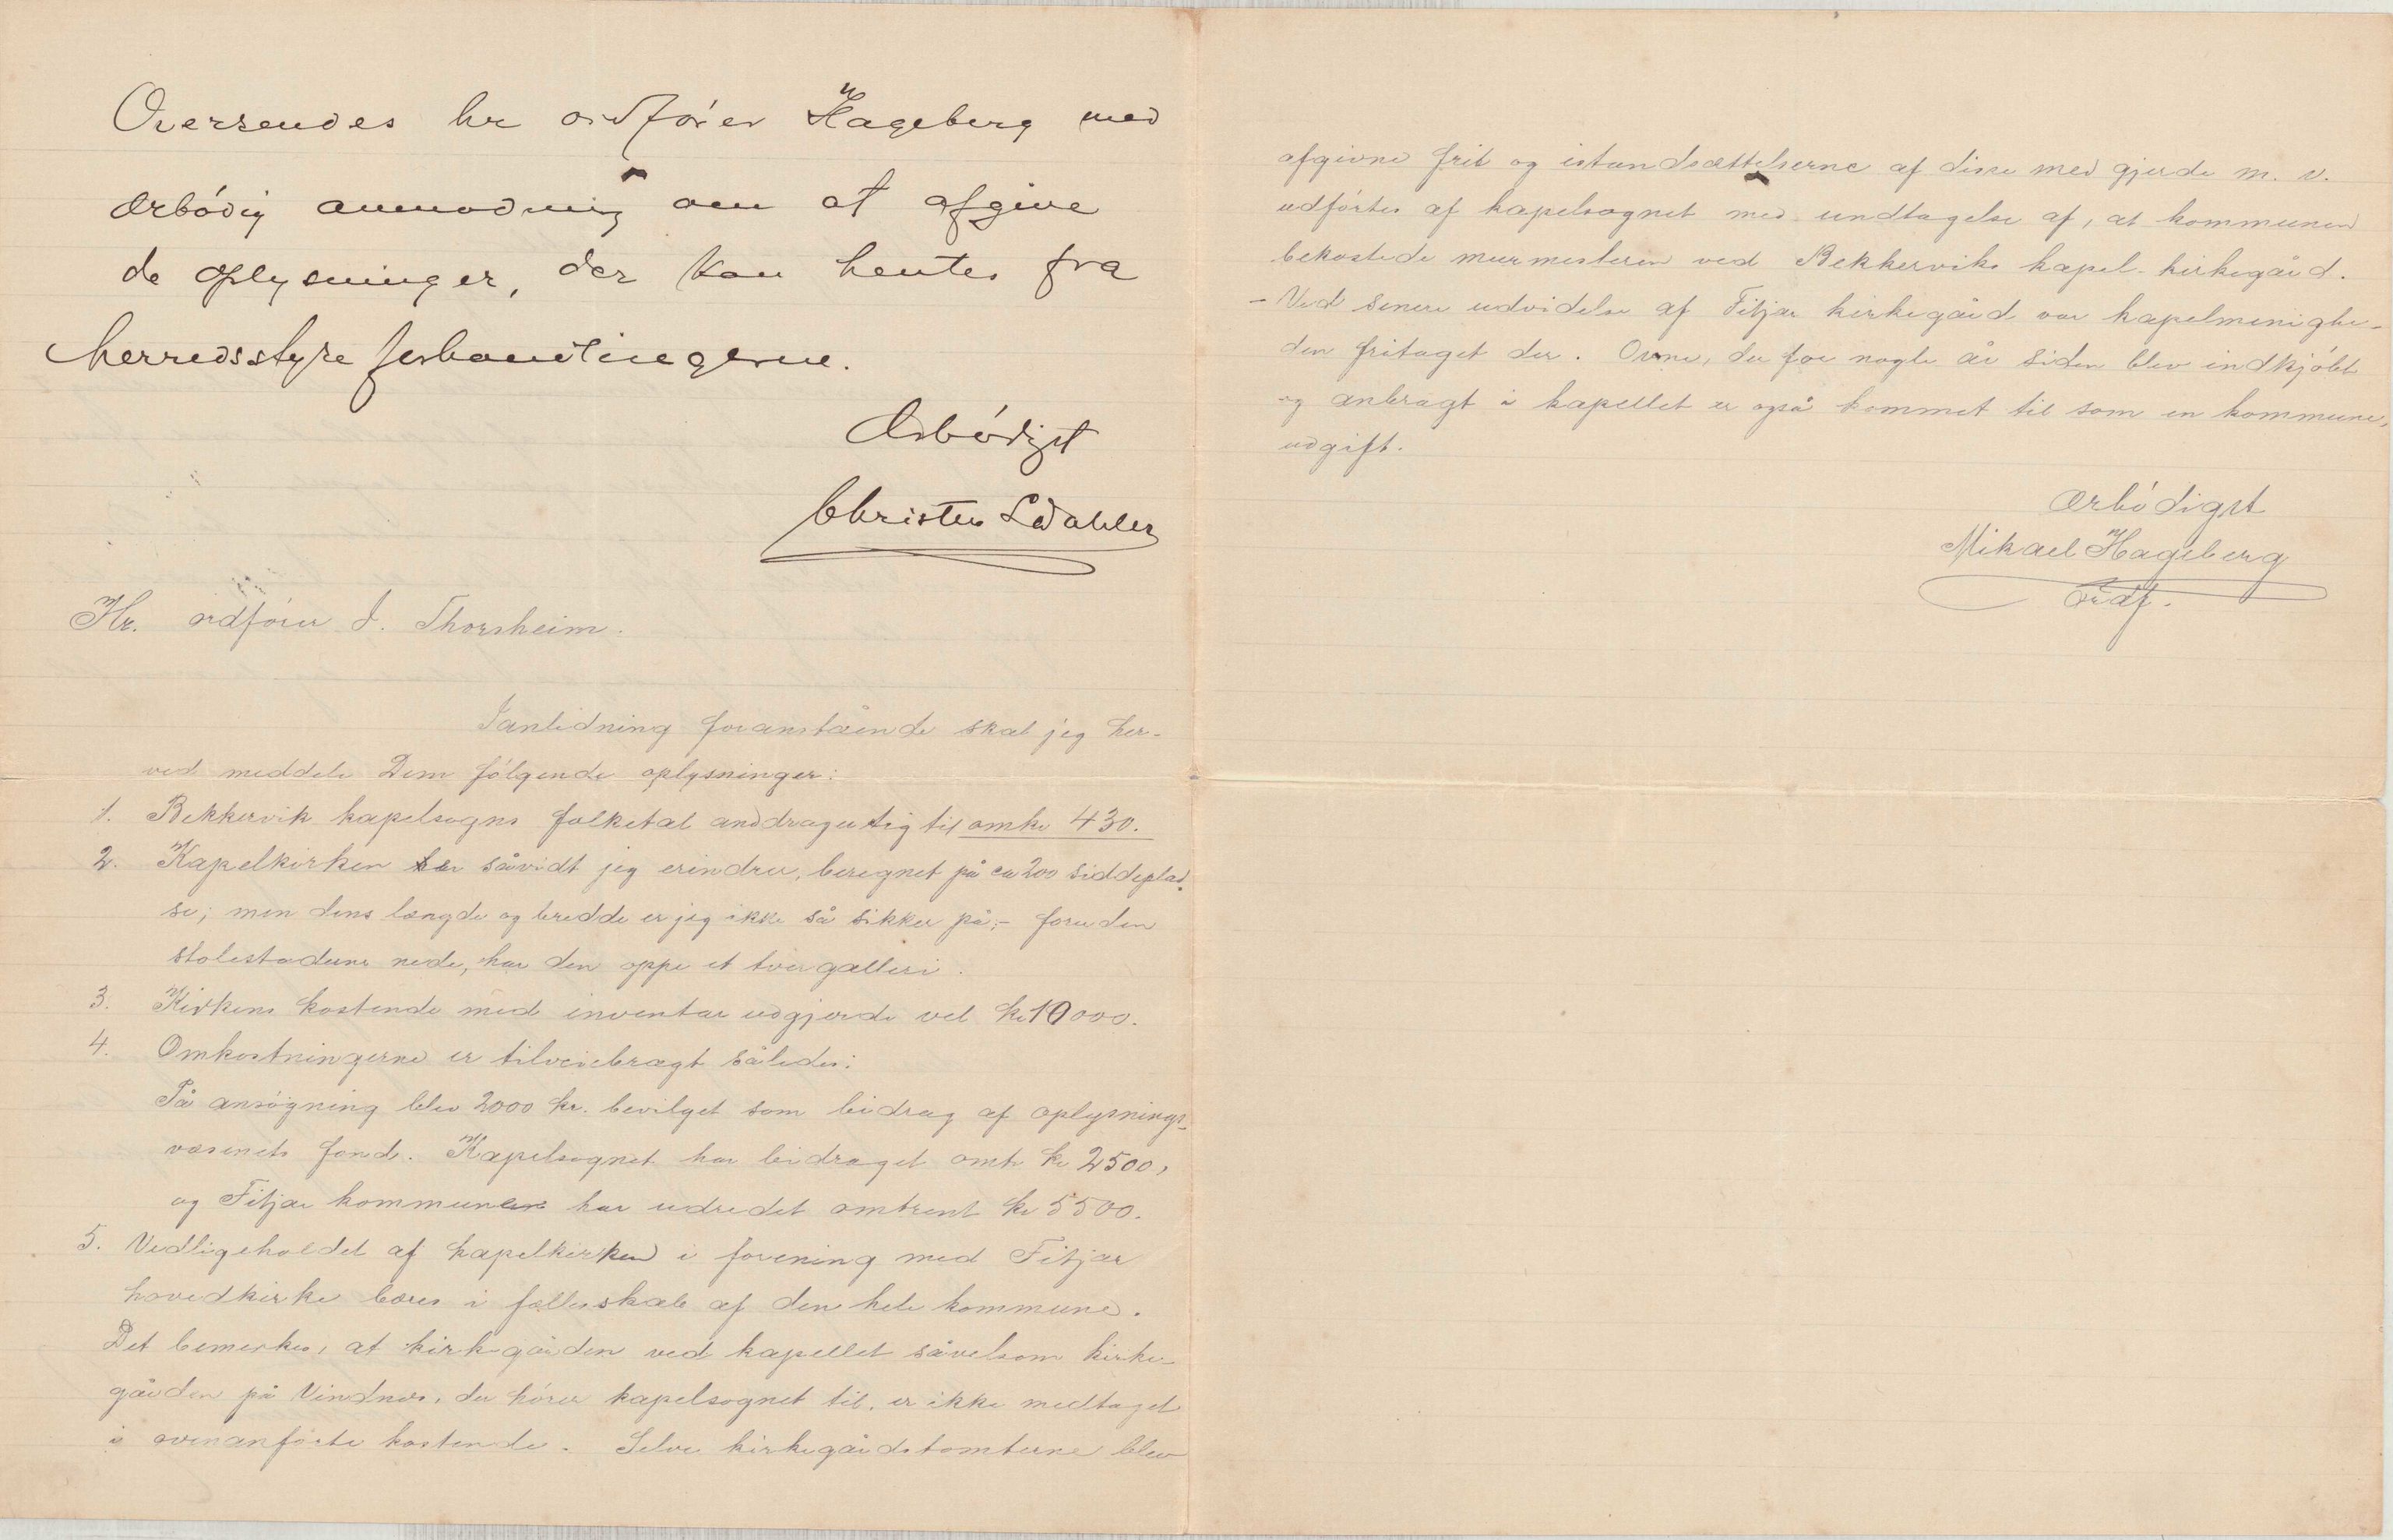 Oversendes hr ordfører Hageberg med
ærbødig anmodning om at afgive
de oplysninger, der kan hentes fra
herredsstyreforhandlingerne.
Ærbødigst
Christen
Hr. ordfører J. Thorsheim.
Ianledning foranstående skal jeg her-
ved meddele Dem følgende oplysninger:
1. Bekkervik kapelsogns folketal anddrager sig til omkr 430.
2. Kapelkirken er såvidt jeg erindrer, beregnet på ca 200 siddeplad-
se; men dens længde og bredde er jeg ikke så sikker på;- foruden
stolestaderne nede, har den oppe et tvergalleri.
3. Kirkens kostende med inventar udgjorde vel kr 10000.
4. Omkostningerne er tilveiebragt således:
På ansøgning blev 2000 kr. bevilget som bidrag af oplysnings-
væsenets fond. Kapelsognet har bidraget omtr kr 2500,
og Fitjar kommune har udredet omtrent kr 5500.
5. Vedligeholdet af kapelkirken i forening med Fitjar
hovedkirke bæres i fællesskab af den hele kommune.
Det bemerkes, at kirkegården ved kapellet såvelsom kirke-
gården på Vindnes, der hører kapelsognet til, er ikke medtaget
i ovenanførte kostende. Selve kirkegårdstomterne blev
afgivne frit og istandsættelserne af disse med gjerde m. v.
udførtes af kapelsognet med undtagelse af, at kommunen
bekostede murmesteren ved Bekkerviks kapel-kirkegård.
- Ved senere udvidelse af Fitjar kirkegård var kapelmenighe-
den fritaget der. Ovne, der for nogle år siden blev indkjøbt
og anbragt i kapellet er også kommet til som en kommune-
udgift.
Ærbødigst
Mikael Hageberg
Ordf.